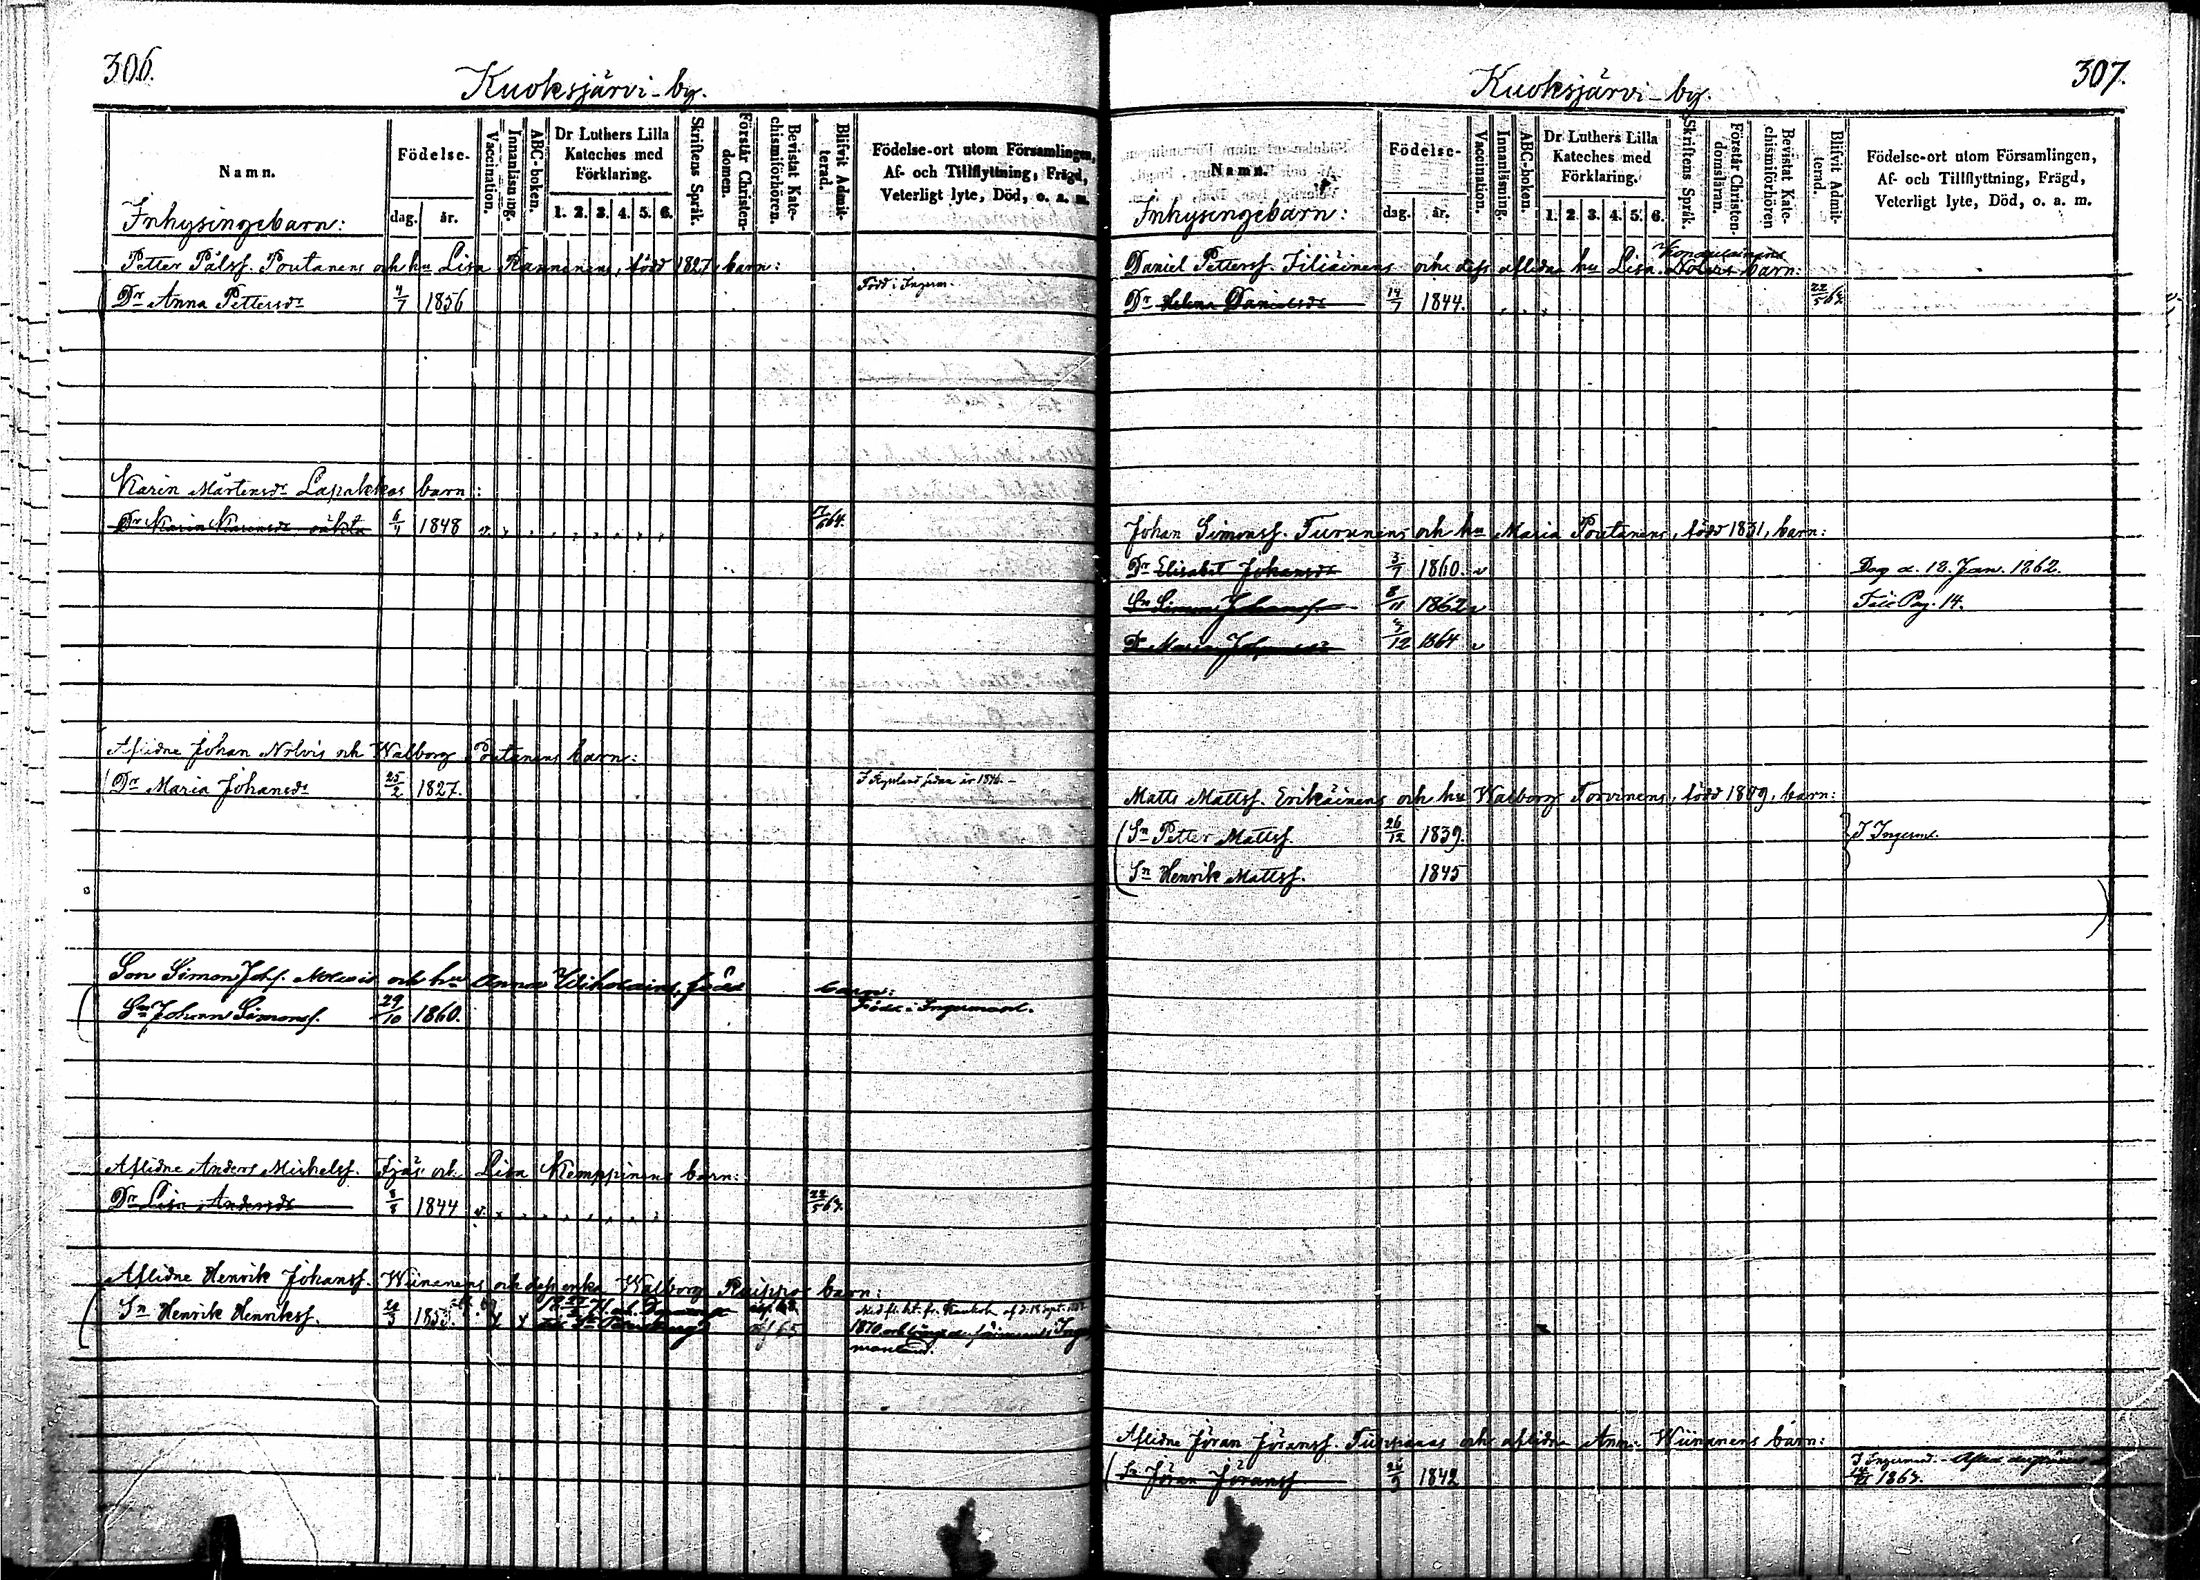 306.
Kuoksjärvi-by.
Namn.
Födelse-
dag.
år.
Vaccination.
Innanläsning.
ABC-boken.
Dr Luthers Lilla Kateches med Förklaring.
1. 2. 3. 4. 5. 6.
Skriftens Språk.
Förstår Christendomen.
Bevistat Katechismiförhören.
Blifvit Admitterad.
Födelse-ort utom Församlingen,
Af- och Tillflyttning, Frägd,
Veterligt lyte, Död, o. a. m.
Inhysingebarn:
Petter Pålsf. Poutanens och hu Lisa Ranninens, född 1827, barn:
Född i Ingerm.
Dr Anna Pettersdr 4/7 1856
Karin Mårtensdr Lapakkas barn:
Dr Karin Karinsdr, oäkta 6/4 1848 v. 64.
Aflidne Johan Nolvis och Walborg Poutanens barn:
Dr Maria Johansdr 25/2 1827. I Ryssland sedan år 1846.
Son Simon Johsf. och hu Anna född barn:
Sn Johan Simonsf. 29/10 1860. Född i Ingermanl.
Aflidne Anders Michelsf. och Lisa Kemppinens barn:
Dr Lisa Andersdr 8/8 1844 v. 22/5 64.
Aflidne Henrik Johansf. Wiinanens och dess enka Walborg Raippos barn:
Sn Henrik Henriksf. 24/3 1853. 65
1870 och Ingermanland.
307.
Kuoksjärvi-by.
Namn.
Födelse-
dag.
år.
Vaccination.
Innanläsning.
ABC-boken.
Dr Luthers Lilla Kateches med Förklaring.
1. 2. 3. 4. 5. 6.
Skriftens Språk.
Förstår Christendomsläran.
Bevistat Katechismiförhören
Blifvit Admitterad.
Födelse-ort utom Församlingen,
Af- och Tillflyttning, Frägd,
Veterligt lyte, Död, o. a. m.
Inhysingebarn:
Daniel Pettersf. Iiliäinens och dess aflidne hu Lisa barn:
Dr Helena Danielsdr 14/7 1844. 22/5 64.
Johan Simonsf. Turunens och hu Maria Poutanens, född 1831, barn:
Dr Elisabet Johansdr 3/7 1860. v Dog d. 18. Jan. 1862.
Sn Simon Johansf. 8/11 1862 v Till Pag. 14.
Dr Maria Johansdr 4/12 1864 v
Matts Mattsf. Erikäinens och hu Walborg Torvinens, född 1809, barn:
Sn Petter Mattsf. 26/12 1839. I Ingerml.
Sn Henrik Mattsf. 1845
Aflidne Jöran Jöransf. och aflidne Anna Wiinanens barn:
Sn Jöran Jöransf. 24/3 1842 I Ingermanl.
1867.